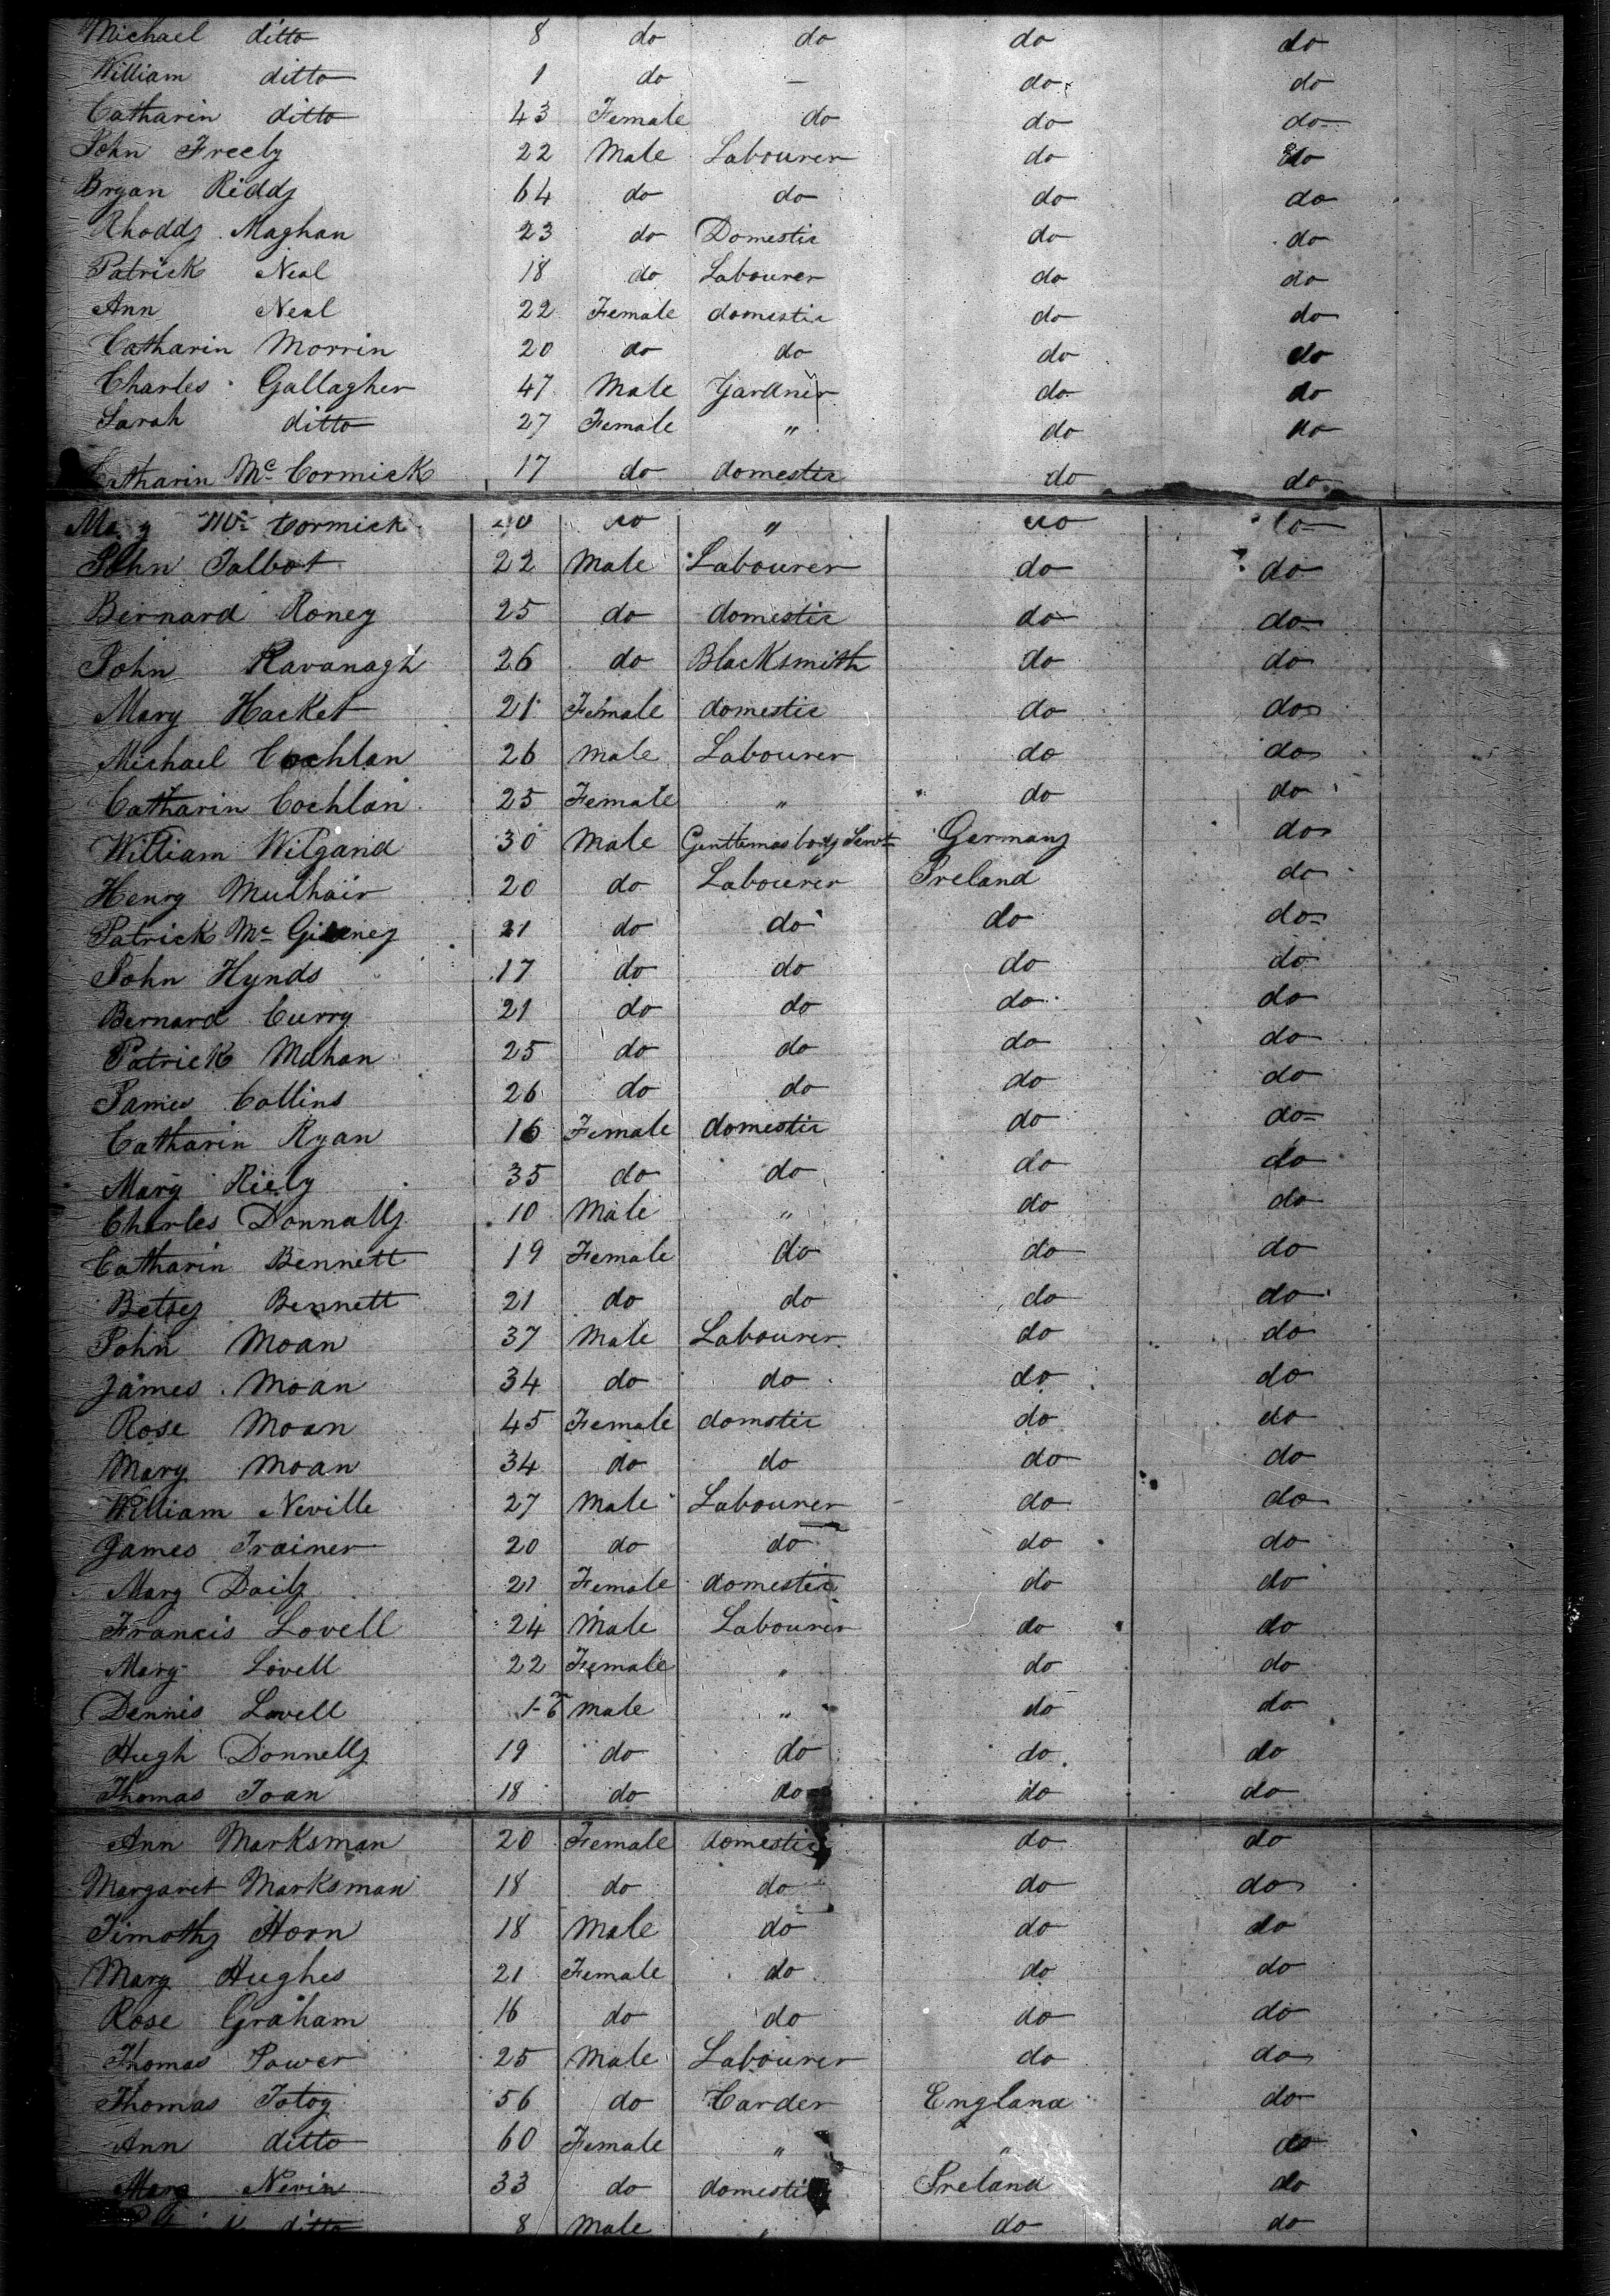 Michael ditto 8 do do do do
William ditto 1 do — do do
Catharin ditto 43 Female do do do
John Freely 22 Male Labourer do do
Bryan Riddy 64 do do do do
Rhoddy Maghan 23 do Domestic do do
Patrick Neal 18 do Labourer do do
Ann Neal 22 Female domestic do do
Catharin Morrin 20 do do do do
Charles Gallagher 47 Male Gardner do do
Sarah ditto 27 Female " do do
Catharin Mc Cormick 17 do domestic do do
Mary Mc Cormick do " do do
John Talbot 22 Male Labourer do do
Bernard Roney 25 do domestic do do
John Kavanagh 26 do Blacksmith do do
Mary Hacket 21 Female domestic do do
Michael Cochlan 26 Male Labourer do do
Catharin Cochlan 25 Female " do do
William Wilgand 30 Male Gentlemas body Servt Germany do
Henry Mulhair 20 do Labourer Ireland do
Patrick Mc 21 do do do do
John Hynds 17 do do do do
Bernard Curry 21 do do do do
Patrick Mahan 25 do do do do
James Collins 26 do do do do
Catharin Ryan 16 Female domestic do do
Mary Riely 35 do do do do
Charles Donnally 10 Male " do do
Catharin Bennett 19 Female do do do
Betsey Bennett 21 do do do do
John Moan 37 Male Labourer do do
James Moan 34 do do do do
Rose Moan 45 Female domstic do do
Mary Moan 34 do do do do
William Neville 27 Male Labourer do do
James Trainer 20 do do do do
Mary Daily 21 Female domestic do do
Francis Lovell 24 Male Labourer do do
Mary Lovell 22 Female " do do
Dennis Lovell Male " do do
Hugh Donnelly 19 do do do do
Thomas Toan 18 do do do do
Ann Marksman 20 Female domestic do do
Margaret Marksman 18 do do do do
Timothy Horn 18 Male do do do
Mary Hughes 21 Female do do do
Rose Graham 16 do do do do
Thomas Power 25 Male Labourer do do
Thomas Totoy 56 do Carder England do
Ann ditto 60 Female " " do
Mary Nevin 33 do domestic Ireland do
ditto 8 Male " do do